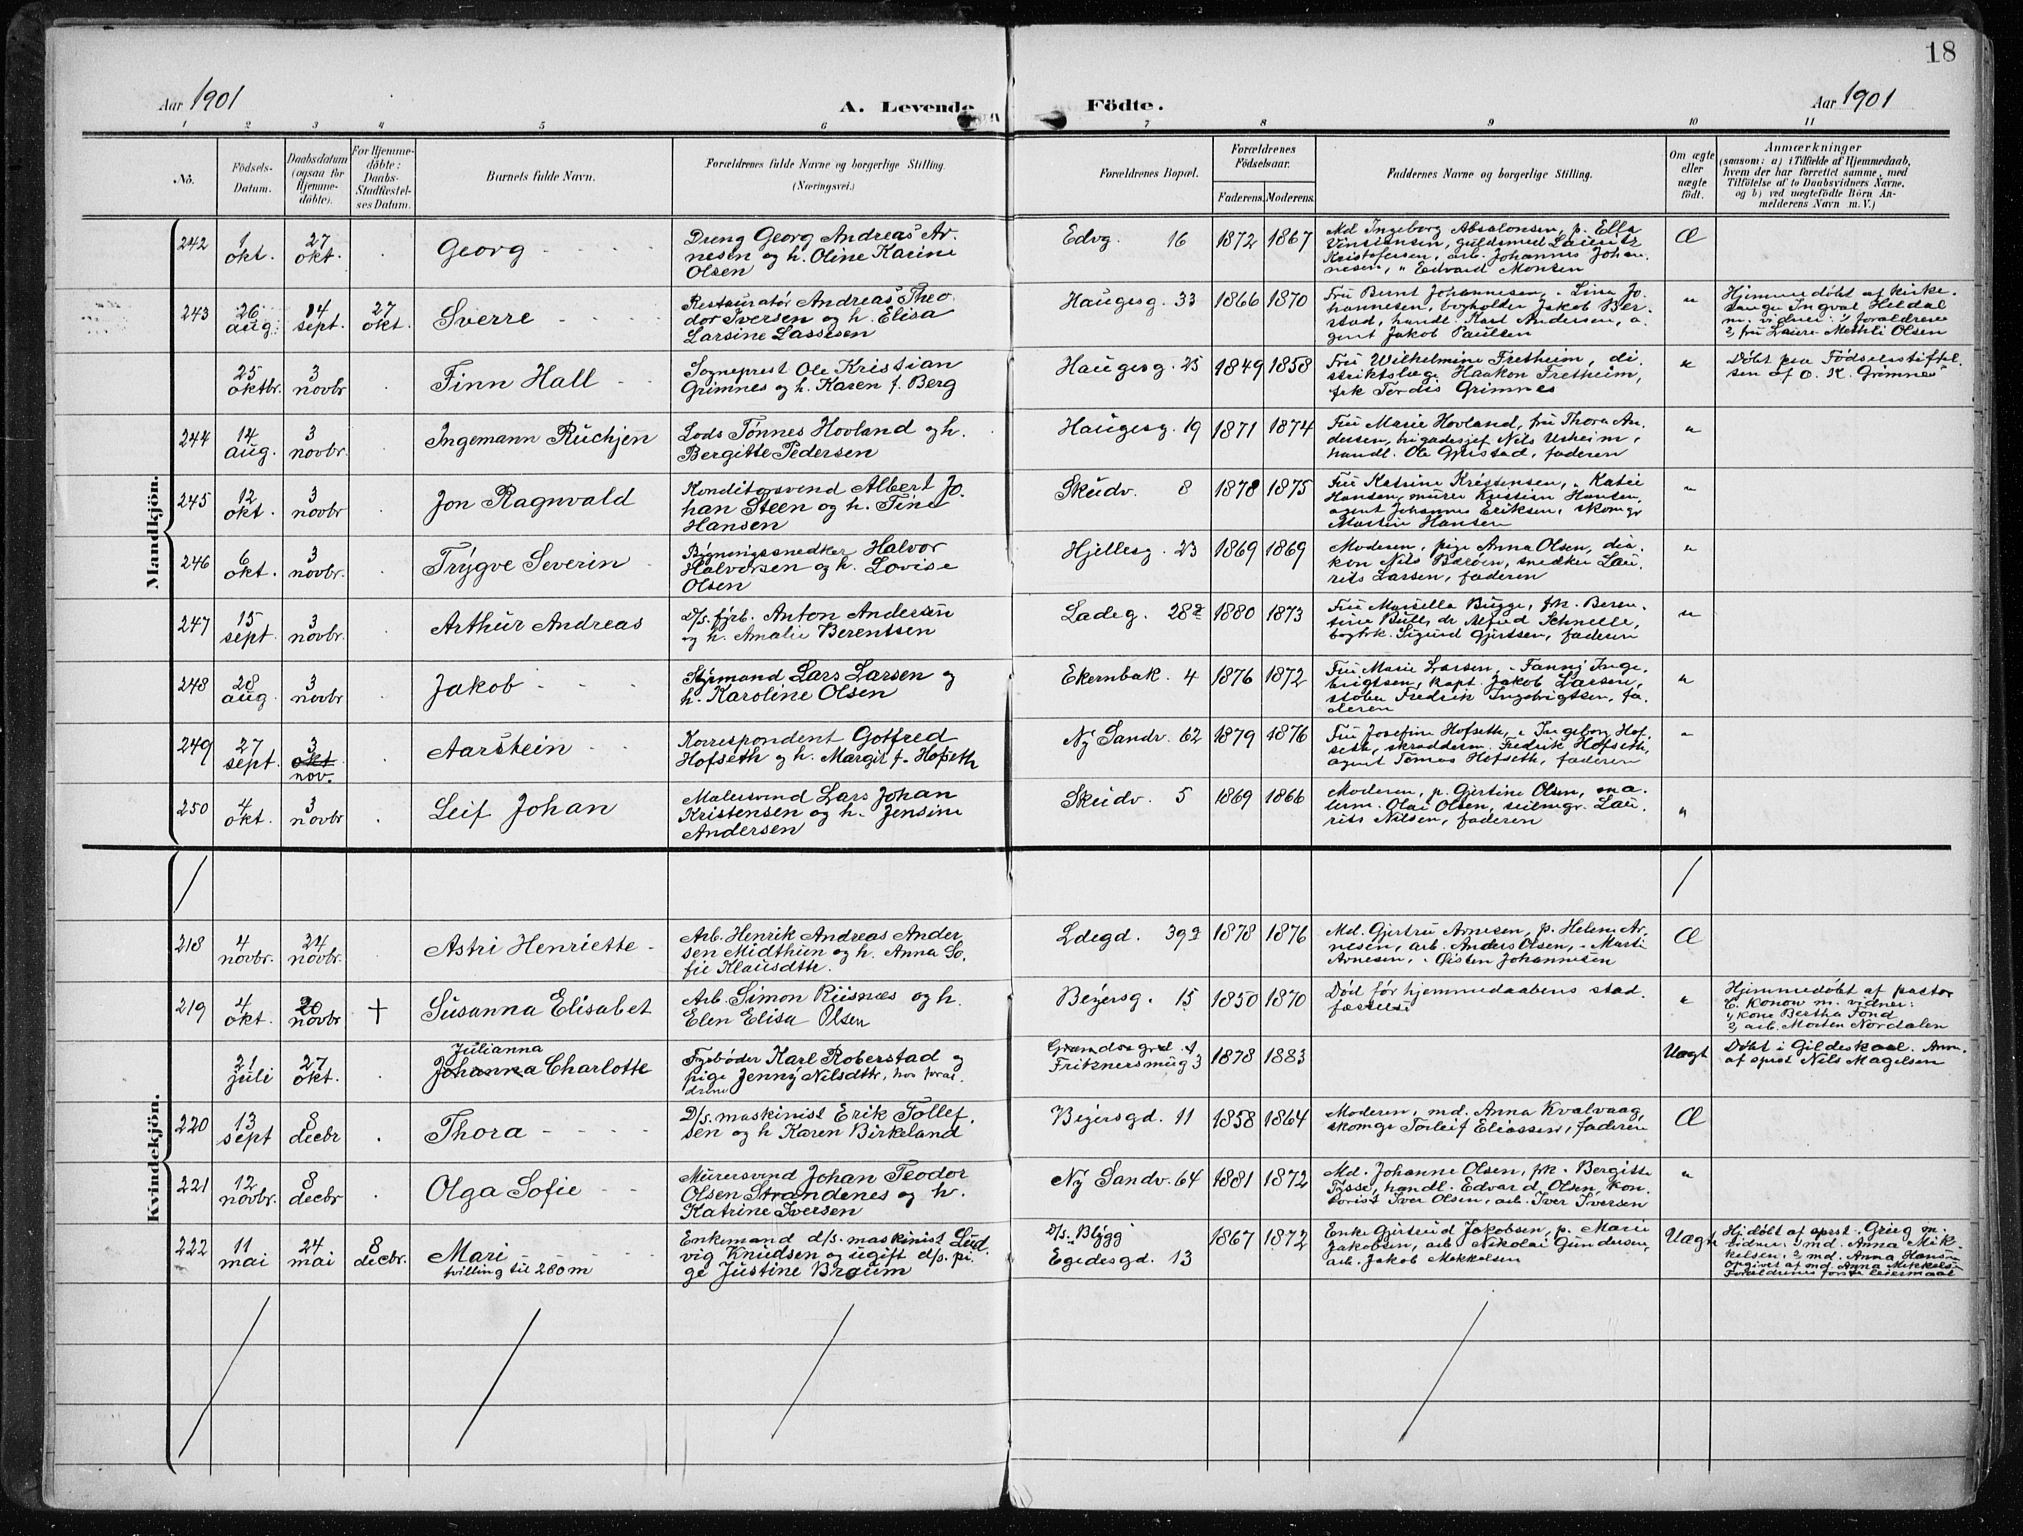 18
Aar 1901
A. Levende Födte.
Aar 1901
1 2 3 4 5 6 7 8 9 10 11
No.
Födsels-
Datum.
Daabsdatum
(ogsaa for
Hjemme-
döbte).
For Hjemme-
döbte:
Daabs-
Stadfæstel-
ses Datum.
Barnets fulde Navn.
Forældrenes fulde Navne og borgerlige Stilling.
(Næringsvei.)
Forældrenes Bopæl.
Forældrenes
Födselsaar.
Faderens. Moderens.
Faddernes Navne og borgerlige Stilling.
Om ægte
eller
uægte
födt.
Anmærkninger
(saasom: a) i Tilfælde af Hjemmedaab,
hvem der har forrettet samme, med
Tilföielse af to Daabsvidners Navne,
og b) ved uægtefödte Börn An-
melderens Navn m. V.)
Mandkjön.
242
1
okt.
27
okt.
Georg
Dreng Georg Andreas Ar-
nesen og h. Oline Karine
Olsen
Edvg. 16
1872 1867
Md Ingeborg Absalonsen, p. Ella
Vinsiansen, guldsmed Lauritz
Kristofersen, arb. Johannes Johan-
nesen, " Edvard Monsen
Æ
243
26
aug.
14
sept.
27
okt.
Sverre
Restauratør Andreas Theo-
dor Iversen og h. Elisa
Larsine Lassesen
Haugesg. 33
1866 1870
Fru Bernt Johannesen, " Lina Jo-
hannesen, bogholder Jakob Ber-
stad, handl. Karl Andersen, a-
gent Jakob Paulsen
"
Hjemmedøbt af kirke-
sanger Ingval Heldal
m. vidner: 1, forældrene
2, fru Laura Mathli Olsen
25
oktbr.
3
novbr
Finn Hall
Sogneprest Ole Kristian
Grimnes og h. Karen f. Berg
Haugesg. 25
1849 1858
Fru Wilhelmine Fretheim, di-
striktslæge Haakon Fretheim,
frk Tordis Grimnes
"
Døbt paa Fødselsstiftel-
sen af O. K. Grimnes
244
14
aug.
3
novbr.
Ingemann Ruchjen
Lods Tønnes Hovland og h.
Bergitte Pedersen
Haugesg. 19
1871 1874
Fru Marie Hovland, fru Thora An-
dersen, brigadesjef Nils Usheim,
handl. Ole Gjerstad, faderen
"
245
12
okt.
3
novbr
Jon Ragnvald
Konditorsvend Albert Jo-
han Steen og h. Tine
Hansen
Skudv. 8
1878 1875
Fru Katrine Kristensen, " Katie
Hansen, murer Kristian Hansen,
agent Johannes Eriksen, skomgr
Martin Hansen
"
246
6
okt.
3
novbr.
Trygve Severin
Bygningssnedker Halvor
Halvorsen og h. Lovise
Olsen
Hjellesg. 23
1869 1869
Moderen, pige Anna Olsen, dia-
kon Nils Barøen, snedker Lau-
rits Larsen, faderen
"
247
15
sept.
3
novbr.
Arthur Andreas
D/s. fyrb. Anton Andersen
og h. Amalie Berentsen
Ladeg. 28a
1880 1873
Fru Marsella Bugge, frk. Beren-
tine Bull, dr Alfred Schnelle,
boghk. Sigurd Gjertsen, faderen
"
248
28
aug.
3
novbr
Jakob
Styrmand Lars Larsen og
h. Karoline Olsen
Ekernbak. 4
1876 1872
Fru Marie Larsen, " Fanny Inge-
brigtsen, kapt. Jakob Larsen,
støber Fredrik Ingebrigtsen, fa-
deren
"
249
27
sept.
3
okt
nov.
Aarstein
Korrespondent Gotfred
Hofseth og h. Margit f. Hofseth
Ny Sandv. 62
1879 1876
Fru Josefine Hofseth, " Ingeborg Hof-
seth, skrædderm. Fredrik Hofseth,
agent Tomas Hofseth, faderen
"
250
4
okt.
3
novbr
Leif Johan
Malersvend Lars Johan
Kristensen og h. Jensine
Andersen
Skudv. 5
1869 1866
Moderen, p. Gjertine Olsen, ma-
lerm. Olai Olsen, seilmgr. Lau-
rits Nilsen, faderen
"
Kvindekjön.
218
4
novbr.
24
novbr.
Astri Henriette
Arb. Henrik Andreas Ander
sen Midthun og h. Anna So-
fie Klausdtr.
Ldegd. 39a
1878 1876
Md. Gjertru Arnesen, p. Helene Ar-
nesen, arb. Anders Olsen, " Marti
Arnesen, " Øisten Johannesen
Æ
219
4
okt.
20
novbr
+
Susanna Elisabet
Arb. Simon Riisnæs og h.
Elen Elisa Olsen
Beyersg. 15
1850 1870
Død før hjemmedaabens stad-
fæstelse
"
Hjemmedøbt af pastor
C. Konow m. vidner:
1, Kone Bertha Fond
2, arb. Morten Nordalen
21
juli
27
okt.
Julianna
Johanna Charlotte
Fyrbøder Karl Roberstad og
pige Jenny Nilsdtr, hos foræl-
drene
Fritznersmug 3
1878 1883
Uægt
Døbt i Gildeskaal. Anm.
af sprst Nils Magelsen
220
13
sept
8
decbr
Thora
D/s. maskinist Erik Tollef-
sen og h Karen Birkeland
Beyersgd. 11
1858 1864
Moderen, md. Anna Kvalvaag,
skomgr Torleif Eliassen, faderen
Æ
221
12
novbr.
8
decbr
Olga Sofie
Murersvend Johan Teodor
Olsen Strandenes og h.
Katrine Iversen
Ny Sandv. 64
1881 1872
Md. Johanne Olsen, frk. Bergitte
Tysse, handl. Edvard Olsen, kon-
torist Iver Olsen, arb. Iver Iversen
"
222
11
mai
24
mai
8
decbr.
Mari
tvilling til 280 m
Enkemand d/s. maskinist Lud-
vig Knudsen og ugift d/s. pi-
ge Justine Braum
D/s. Blygg
Egedesgd. 13
1867 1872
Enke Gjertrud Jakobsen, p. Marie
Jakobsen, arb Nikolai Gundersen,
arb. Jakob Mekkelsen
Uægte
Hj.døbt af sprst. Grieg m.
vidner: 1 md. Anna Mik-
kelsen, 2 md. Anna Hansen
Opgivet af md. Anna Mikkelsen
Forældrenes første leiermaal